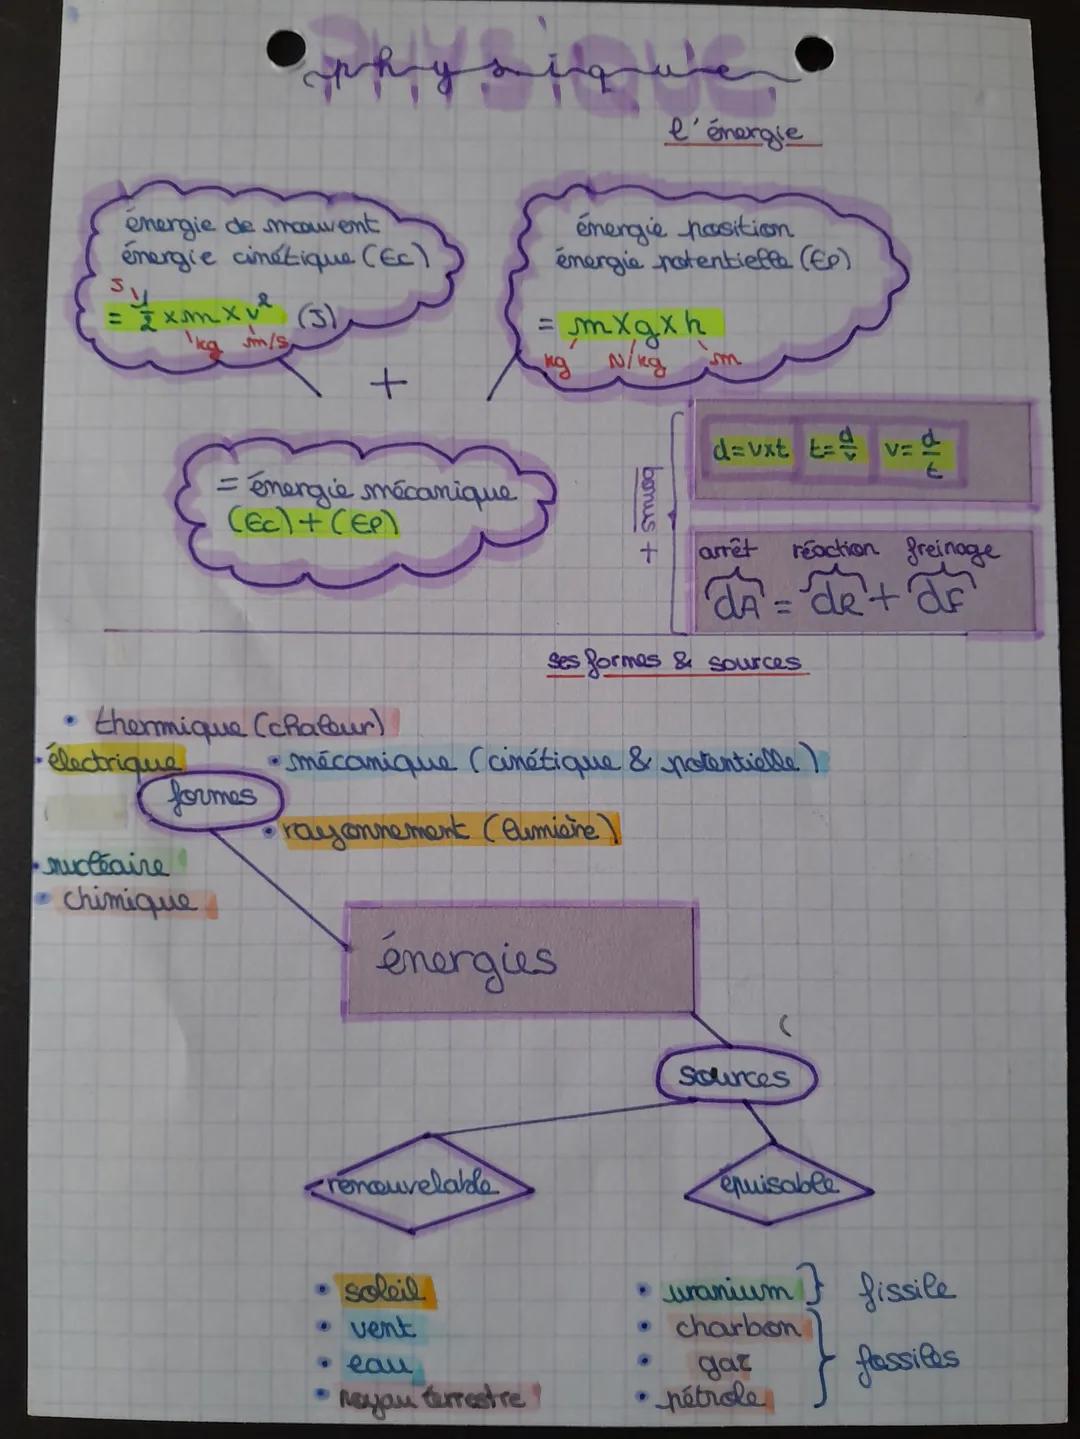 PHYSIQUE
physique
l'énergie
énergie de mouvent
énergie cinétique (Ec)
J
= 1/2 x m x v² (J)
kg m/s
énergie position
énergie potentielle (Ep)
= m x g x h
kg N/kg m
+
= énergie mécanique
(Ec) + (Ep)
bonus +
d=vxt t=d/v v=d/t
arrêt réaction freinage
dA = dR + dF
ses formes & sources
• thermique (chaleur)
• électrique
• mécanique (cinétique & potentielle)
formes
• rayonnement (lumière)
• nucléaire
• chimique
énergies
sources
renouvelable
épuisable
• soleil
• vent
• eau
• noyau terrestre
• uranium } fissile
• charbon
• gaz } fossiles
• pétrole